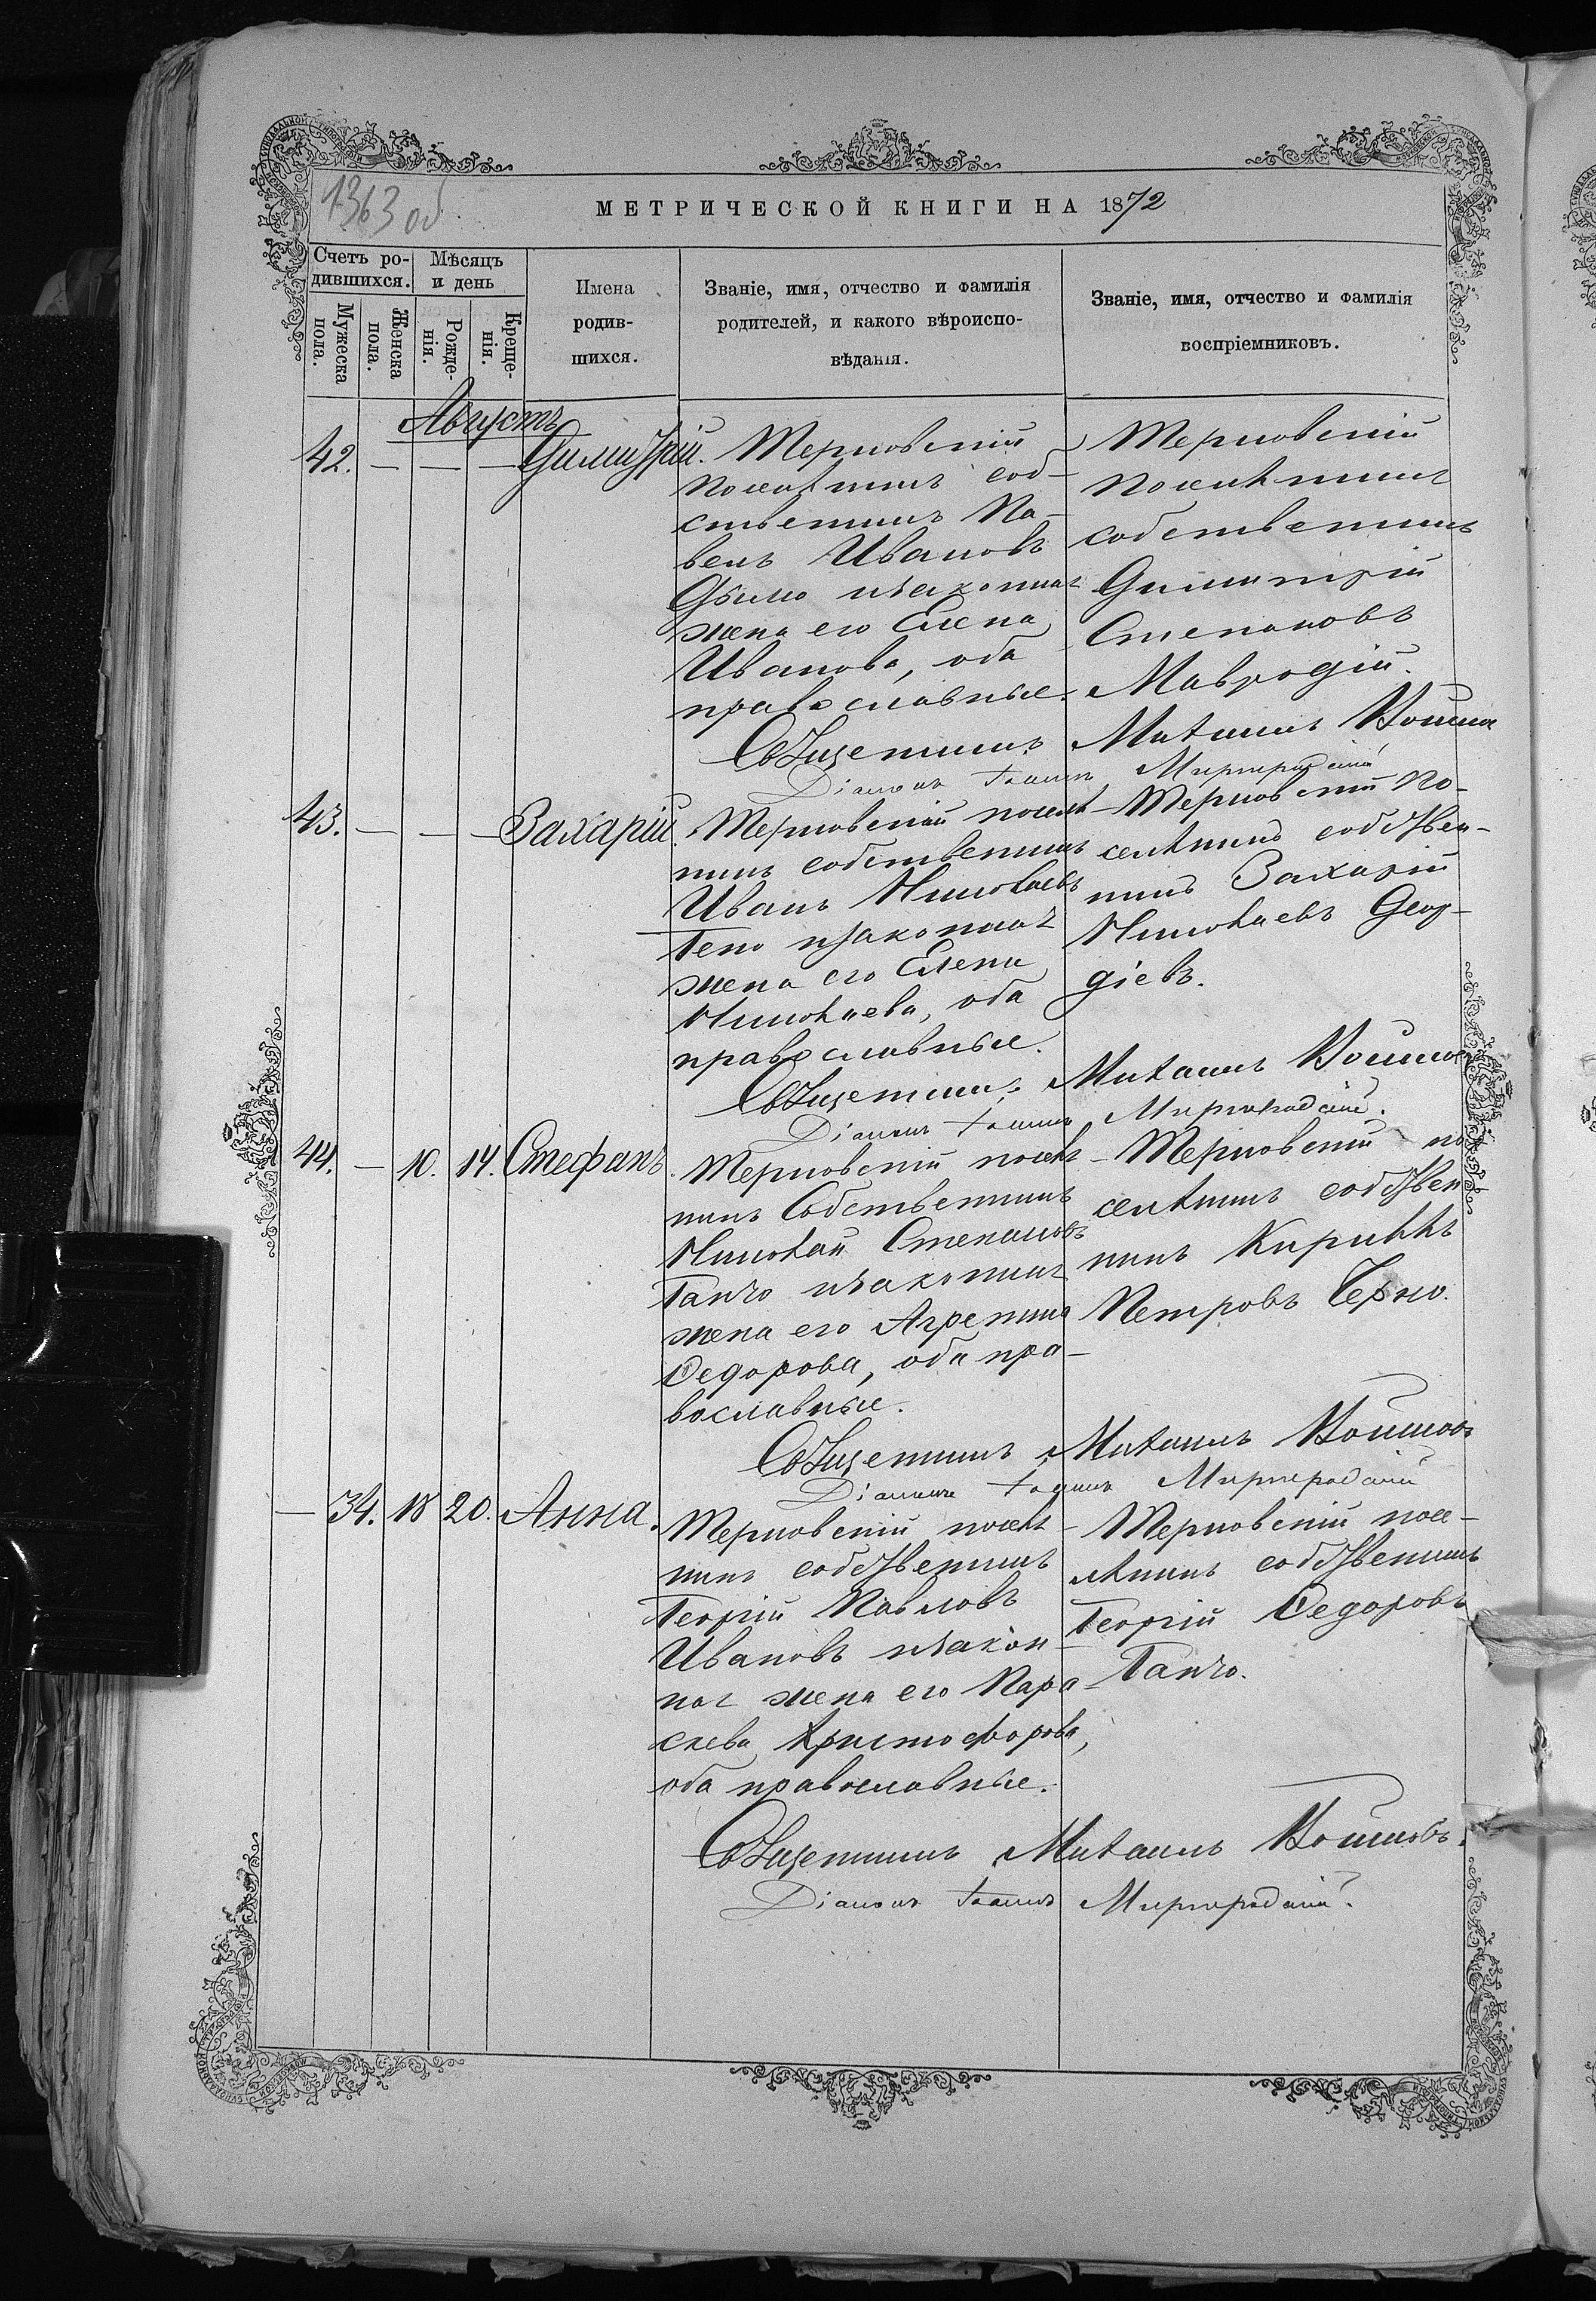 1363 об
МЕТРИЧЕСКОЙ КНИГИ НА 1872
Счетъ родившихся.
Мужеска пола.
Женска пола.
Мѣсяцъ и день
Рожденія.
Крещенія.
Имена родившихся.
Званіе, имя, отчество и фамилія родителей, и какого вѣроисповѣданія.
Званіе, имя, отчество и фамилія воспріемниковъ.
Августъ
42. — — — Димитрій.
Терновскій
поселянинъ соб-
ственникъ Па-
велъ Ивановъ
и законная
жена его Елена
Иванова, оба
православные.
Терновскій
поселянинъ
собственникъ
Димитрій
Степановъ
Мавродій.
Священникъ Михаилъ
Діаконъ Іоаннъ Миргородскій
43. — — — Захарій.
Терновскій поселя-
нинъ собственникъ
Иванъ Николаевъ
Гено и законная
жена его Елена
Николаева, оба
православные.
Терновскій по-
селянинъ собствен-
никъ Захарій
Николаевъ Геор-
гіевъ.
Священникъ Михаилъ
Діаконъ Іоаннъ Миргородскій.
44. — 10. 14. Стефанъ.
Терновскій поселя-
нинъ Собственникъ
Николай Степановъ
Ганчо и законная
жена его Агрепина
Федорова, оба пра-
вославные.
Терновскій по
селянинъ собствен
никъ Кириллъ
Петровъ Черно.
Священникъ Михаилъ
Діаконъ Іоаннъ Миргородскій
— 34. 18 20. Анна.
Терновскій поселя-
нинъ собственникъ
Георгій Павловъ
Ивановъ и закон-
ная жена его Пара-
скева Христофорова,
оба православные.
Терновскій посе-
лянинъ собственникъ
Георгій Федоровъ
Ганчо.
Священникъ Михаилъ
Діаконъ Іоаннъ Миргородскій.